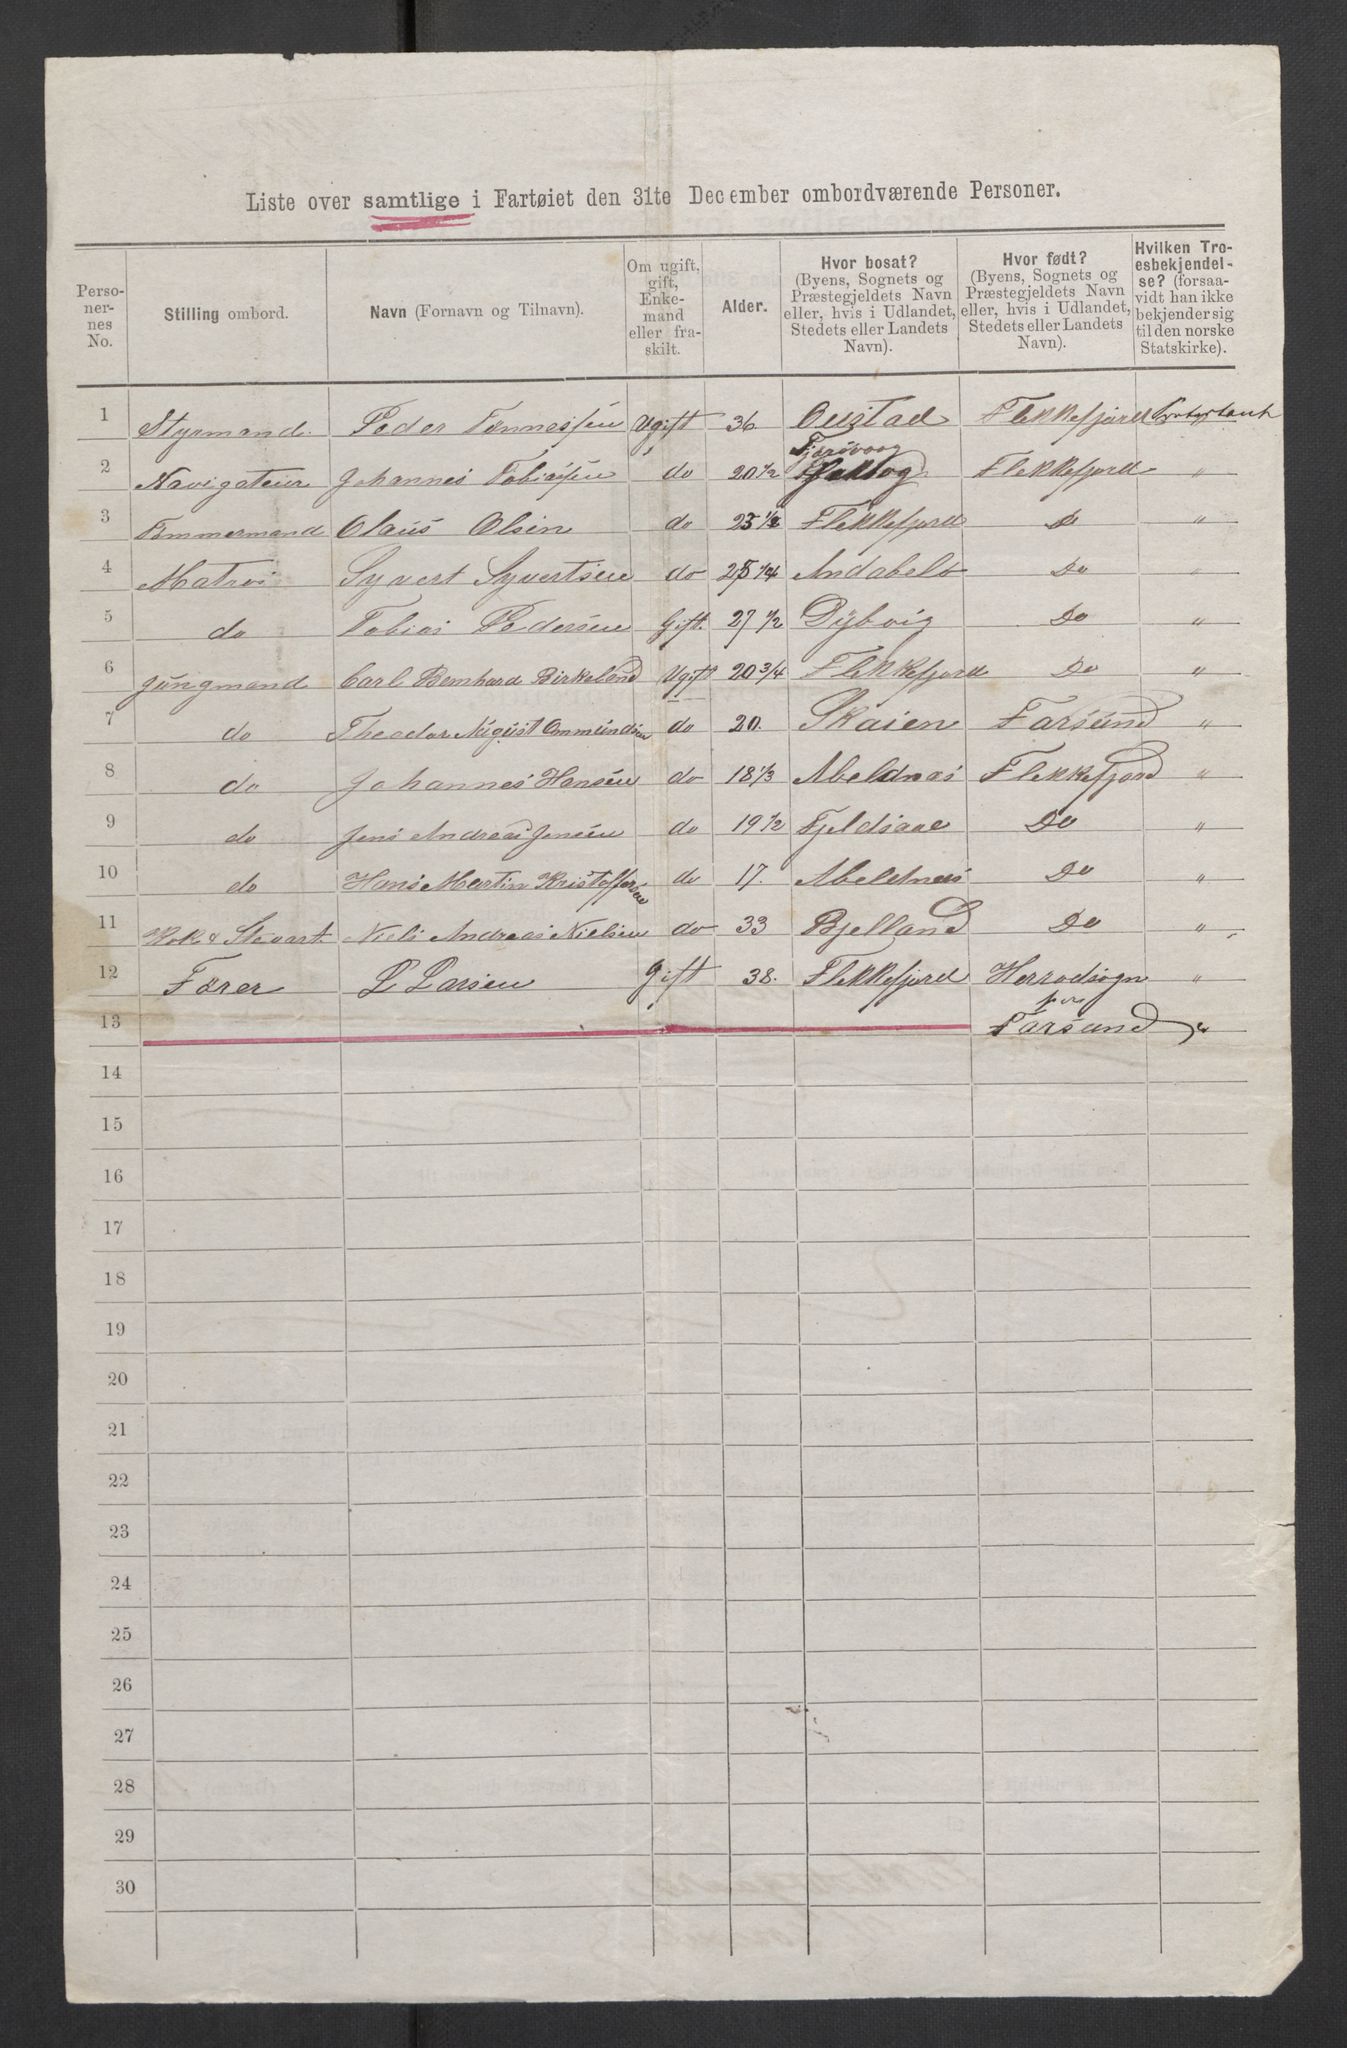 Liste over samtlige i Fartøiet den 31te December ombordværende Personer.
Perso-
ner-
nes
No.
Stilling ombord.
Navn (Fornavn og Tilnavn).
Om ugift,
gift,
Enke-
mand
eller fra-
skilt.
Alder.
Hvor bosat?
(Byens, Sognets og
Præstegjeldets Navn
eller, hvis i Udlandet,
Stedets eller Landets
Navn).
Hvor født?
(Byens, Sognets og
Præstegjeldets Navn
eller, hvis i Udlandet,
Stedets eller Landets
Navn).
Hvilken Tro-
esbekjendel-
se? (forsaa-
vidt han ikke
bekjender sig
til den norske
Statskirke).
1 Styrmand. Peder Tønnessen Ugift 36 Flekkefjord Protestant
2 Navigateur Johannes Tobiassen do 20 1/2 Flekkefjord "
3 Tømmermand Olaus Olsen do 25 1/2 Flekkefjord Do "
4 Matros Syvert Syvertsen do 25 1/4 Andabelø Do "
5 do Tobias Pedersen Gift. 27 1/2 Dybvig Do "
6 Jungmand Carl Bernhard Birkeland Ugift 20 3/4 Flekkefjord Do "
7 do Theodor August Ommundsen do 20. Skaien Farsund "
8 do Johannes Hansen do 18 1/3 Abeldnæs Flekkefjord "
9 do Jens Andreas Jensen do 19 1/2 Fjeldsaae Do "
10 do Hans Martin Kristoffersen do 17. Abeldnæs Do "
11 Kok & Stevart Niels Andreas Nielsen do 33 Bjelland Do "
12 Fører L Larsen Gift 38. Flekkefjord Herredsogn "
pr
13 Farsund "
14
15
16
17
18
19
20
21
22
23
24
25
26
27
28
29
30